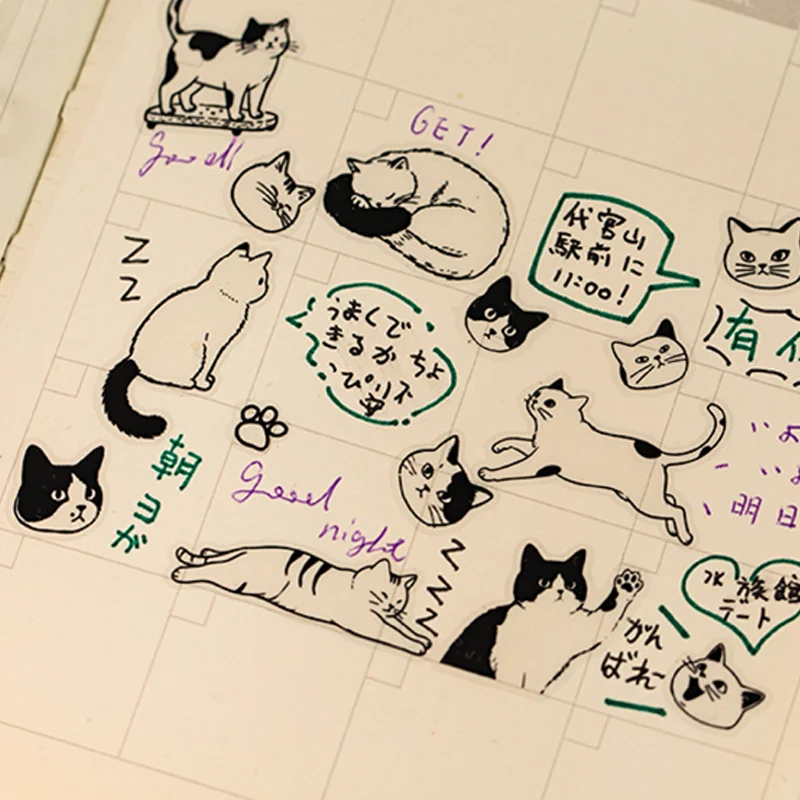 GET!
Good!
代官山
駅前に
11:00!
Z
Z
うまくで
きるか ちょ
っぴり不
安
有 休
朝
ヨガ
明日
Good
night
Z
Z
Z
Z
水族館
デート
がん
ばれー